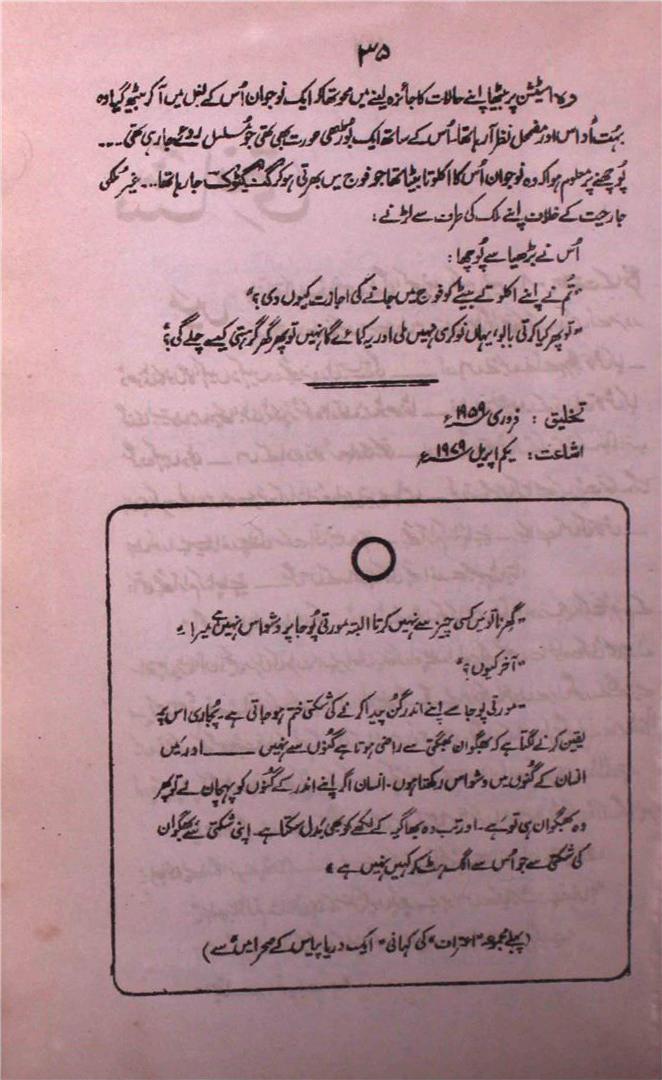 ۳۵
وہ اسٹیشن پر بیٹھا اپنے حالات کا جائزہ لینے میں محو تھا کہ ایک نوجوان اُس کے بغل میں آ کر بیٹھ گیا وہ
بہت اُداس اور مضمحل نظر آ رہا تھا۔ اُس کے ساتھ ایک بوڑھی عورت بھی تھی جو مُسلسل روئے جا رہی تھی ۔۔۔
پُوچھنے پر معلوم ہوا کہ وہ نوجوان اُس کا اکلوتا بیٹا تھا جو فوج میں بھرتی ہو کر گنگٹوک جا رہا تھا ۔۔۔ غیر مُلکی
جارحیت کے خلاف اپنے ملک کی طرف سے لڑنے :
اُس نے بڑھیا سے پُوچھا :
"تُم نے اپنے اکلوتے بیٹے کو فوج میں جانے کی اجازت کیوں دی ؟"
"تو پھر کیا کرتی بابو، یہاں نوکری نہیں ملی اور یہ کمائے گا نہیں تو پھر گھر گرہستی کیسے چلے گی؟"
تخلیق : فروری ۱۹۵۹ء
اشاعت : یکم اپریل ۱۹۷۹ء
"گھرنا تو میں کسی چیز سے نہیں کرتا البتہ مورتی پُوجا پر وشواس نہیں ہے میرا۔"
"آخر کیوں ؟"
"مورتی پوجا سے اپنے اندر گُن پیدا کرنے کی شکتی ختم ہو جاتی ہے۔ پُجاری اس پر
یقین کرنے لگتا ہے کہ بھگوان بھگتی سے راضی ہوتا ہے گُنوں سے نہیں ــــــ اور میں
انسان کے گُنوں میں وشواس رکھتا ہوں۔ انسان اگر اپنے اندر کے گُنوں کو پہچان لے تو پھر
وہ بھگوان ہی تو ہے۔ اور تب وہ بھاگیہ کے لکھے کو بھی بدل سکتا ہے۔ اپنی شکتی سے بھگوان
کی شکتی سے جو اُس سے الگ ہٹ کر کہیں نہیں ہے"
(پہلے مجموعہ "اعتراف" کی کہانی "ایک دریا پیاس کے صحرا میں" سے)